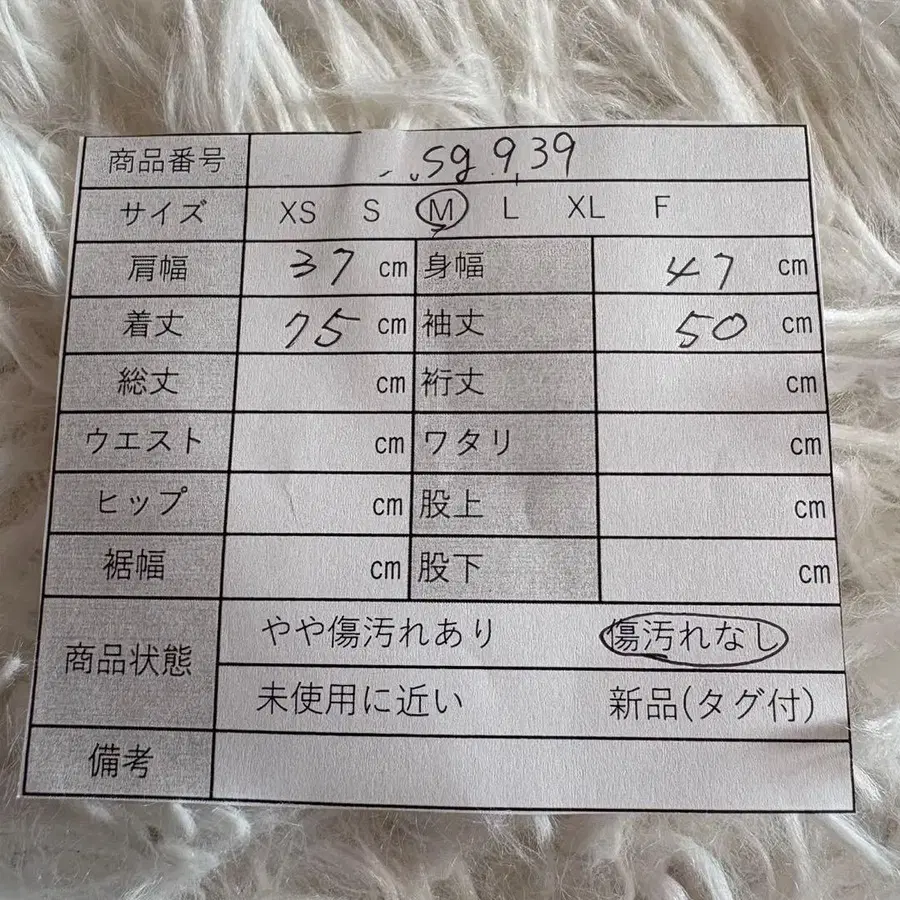 商品番号 sg 939
サイズ XS S M L XL F
肩幅 37 cm 身幅 47 cm
着丈 75 cm 袖丈 50 cm
総丈 cm 裄丈 cm
ウエスト cm ワタリ cm
ヒップ cm 股上 cm
裾幅 cm 股下 cm
商品状態 やや傷汚れあり 傷汚れなし
未使用に近い 新品(タグ付)
備考